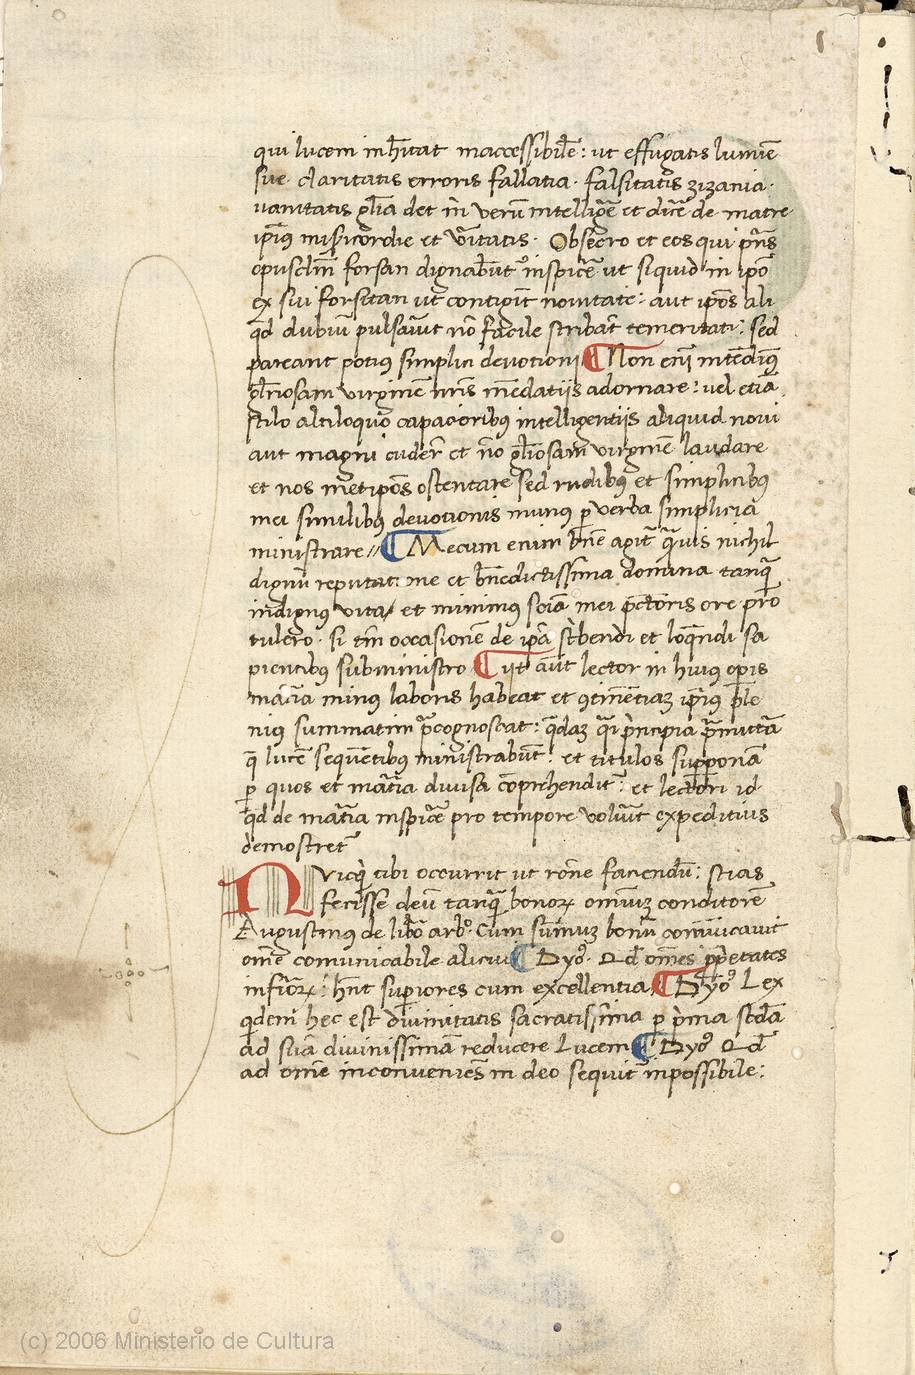 qui lucem inh̄itat inaccessibilē: ut effugatis lumīe
sue claritatis erroris fallatia · falsitatis zizania ·
uanitatis gl̄ia det m̄ verū intelligē et dicē de matre
ip̄ius misicordie et v̄itatis · Obsecro et eos qui p̄ns
opusclm̄ forsan dignabūt inspicē ut siquid in ip̄o
ex sui forsitan ut contigit nouitate: aut ip̄os ali
qd dubiū pulsaūit nō facile scribāt temeritati: sed
pareant potius simplici deuotioni ¶ Non eni intēdimꝰ
gl̄iosam virginē nr̄is mēdatijs adornare: uel etiā
stilo altiloquo capacioribꝰ intelligentijs aliquid noui
aut magni cuder̄ et nō gl̄iosam virginē laudare
et nos metip̄os ostentare sed rudibꝰ et simplicibꝰ
mei similibꝰ deuotionis munus ꝑ verba simplicia
ministrare // ¶ Mecum enim bn̄e agit̄ qūis nichil
dignū reputat me et bn̄edictissima domina tanq̄
indignꝰ vita / et minimꝰ sciā mei pctoris ore pro
tulero · si tm̄ occasionē de ip̄a sc̄bendi et loq̄ndi sa
pientibꝰ subministro ¶ Ut aūt lector in huius oꝑis
mat̄ia minꝰ laboris habeat et ꝯtinētiaꝫ ip̄ius ple
niꝰ summatim p̄cognoscat: q̄daꝫ q̄i principia p̄mittā
q̄ lucē sequētibꝰ ministrabūt: et titulos supponā
ꝑ quos et mat̄ia diuisa cōprehendit̄: et lectori id
qd de mat̄ia inspicē pro tempore volūit expeditius
demostret̄
Quicq̄ tibi occurrit ut rōne faciendū: scias
fecisse deū tanq̄ bonoꝝ omniuꝫ conditorē
Augustinus de lib̄o arb̊. Cum sūmuꝫ bonū cōmūicauit
om̄e comunicabile alicui ¶ Dyoꝰ · Qd om̄es ꝓprietates
inf̄ioꝝ: hn̄t suꝑiores cum excellentia ¶ Dyoꝰ Lex
q̇dem hec est diuinitatis sacratissima ꝑ p̄ma scd̄a
ad suā diuinissimā reducere Lucem ¶ Dyoꝰ Qd
ad om̄e inconueniēs in deo sequit̄ inpossibile:
(c) 2006 Ministerio de Cultura